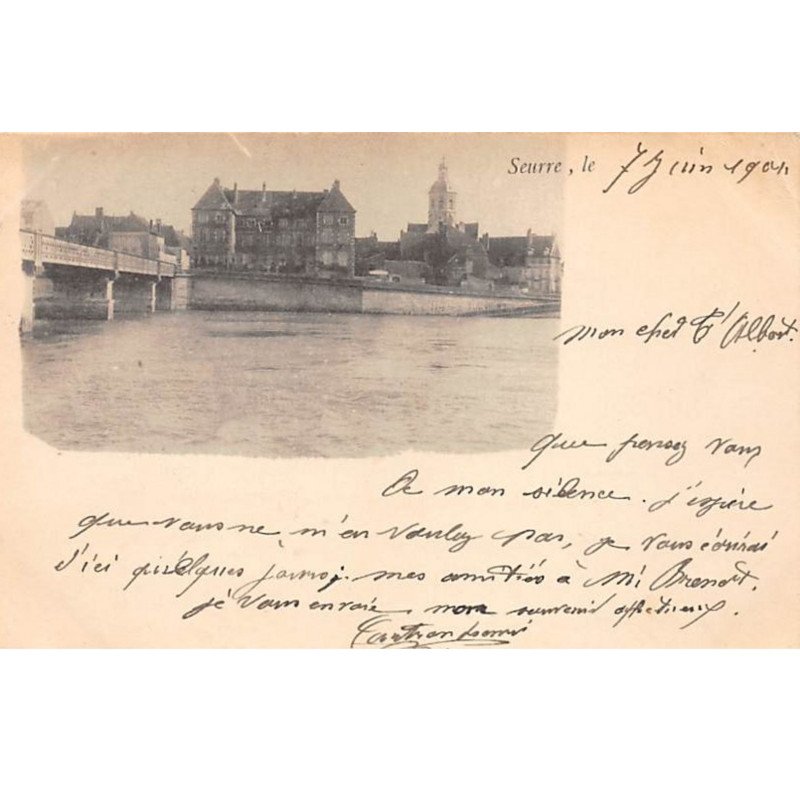 Seurre, le 7 Juin 1901
Mon cher Albert.
Que pensez vous
de mon silence. j'espère
que vous ne m'en voulez pas, je vous écrirai
d'ici quelques jours. mes amitiés à Mr
je vous envoie mon souvenir affectueux.